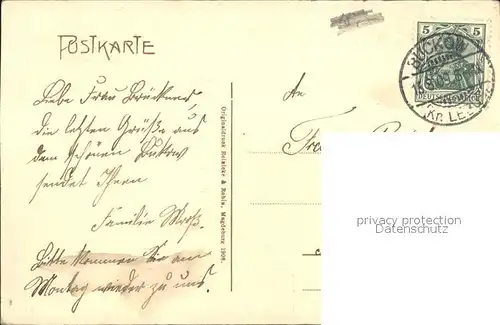 POSTKARTE
Liebe Frau Brückner,
die letzten Grüße aus
dem schönen Bukow
sendet Ihnen
Familie
Bitte kommen Sie am
Montag wieder zu uns.
Originaldruck Reinicke & Rubin, Magdeburg 1908.
An
5 5
DEUTSCHES REICH
BUCKOW
(Kr. LEB
privacy protection
Datenschutz